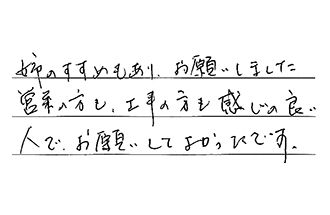 姉のすすめもあり、お願いしました
営業の方も、工事の方も感じの良い
人で、お願いしてよかったです。